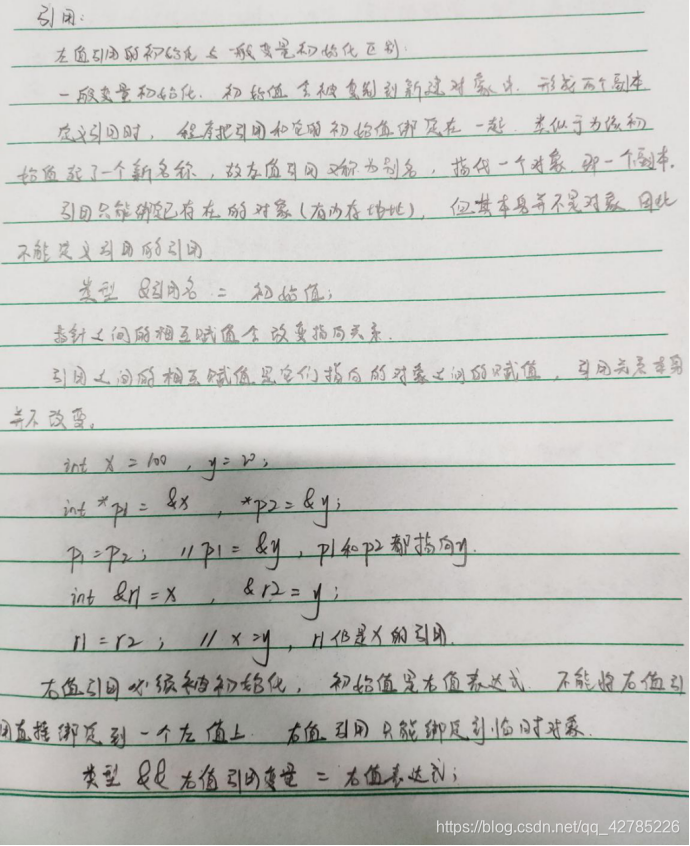 引用:
左值引用的初始化与一般变量初始化区别:
一般变量初始化. 初始值会被复制到新建对象中. 形成两个副本
定义引用时, 程序把引用和它的初始值绑定在一起. 类似于为该初
始值起了一个新名称, 故左值引用又称为别名, 指代一个对象 那一个副本.
引用只能绑定已存在的对象(有内存地址), 但其本身并不是对象 因此
不能定义引用的引用
类型 &引用名 = 初始值;
指针之间的相互赋值会改变指向关系.
引用之间的相互赋值是它们指向的对象之间的赋值, 引用关系本身
并不改变。
int x = 100 , y = 20;
int *p1 = &x , *p2 = &y;
p1 = p2 ; // p1 = &y , p1和p2都指向y.
int &r1 = x , & r2 = y;
r1 = r2 ; // x = y , r1仍是x的引用.
右值引用必须被初始化, 初始值是右值表达式 不能将右值引
用直接绑定到一个左值上. 右值引用只能绑定到临时对象.
类型 && 右值引用变量 = 右值表达式;
https://blog.csdn.net/qq_42785226